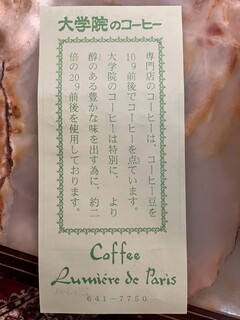 大学院のコーヒー
専門店のコーヒーは、コーヒー豆を
10g前後でコーヒーを点ています。
大学院のコーヒーは特別に、より
醇のある豊かな味を出す為に、約二
倍の20g前後を使用しております。
Coffee
Lumiére de Paris
641-7750